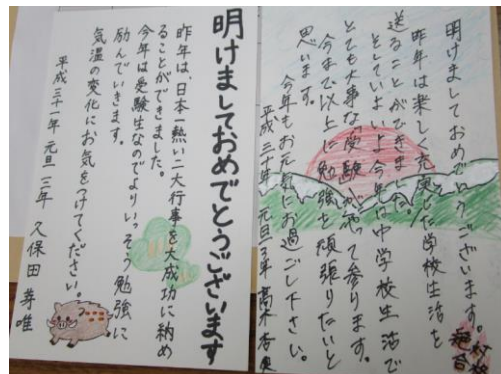 明けましておめでとうございます。
昨年は楽しく充実した学校生活を
送ることができました。
そしていよいよ今年は中学校生活で
とても大事な「受験」が って参ります。
今まで以上に勉強を頑張りたいと
思います。
今年もお元気にお過ごし下さい。
平成三十年 元旦 3年 高木杏
合格
明けましておめでとうございます
昨年は、日本一熱い二大行事を大成功に納め
ることができました。
今年は受験生なのでよりいっそう勉強に
励んでいきます。
気温の変化にお気をつけてください。
平成三十一年 元旦 三年 久保田 芽唯